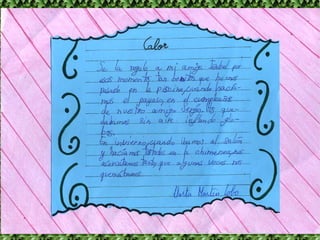 Calor
Se lo regalo a mi amiga Isabel por
esos momentos tan bonitos que hemos
pasado en la piscina, cuando hacía-
mos el payaso, en el cumpleaños
de nuestro amigo Sergio que
sin aire inflando glo-
bos.
En invierno, cuando íbamos al salón
y hacíamos en la chimenea, nos
que algunas veces nos
quemábamos.
Marta Martín Lobo